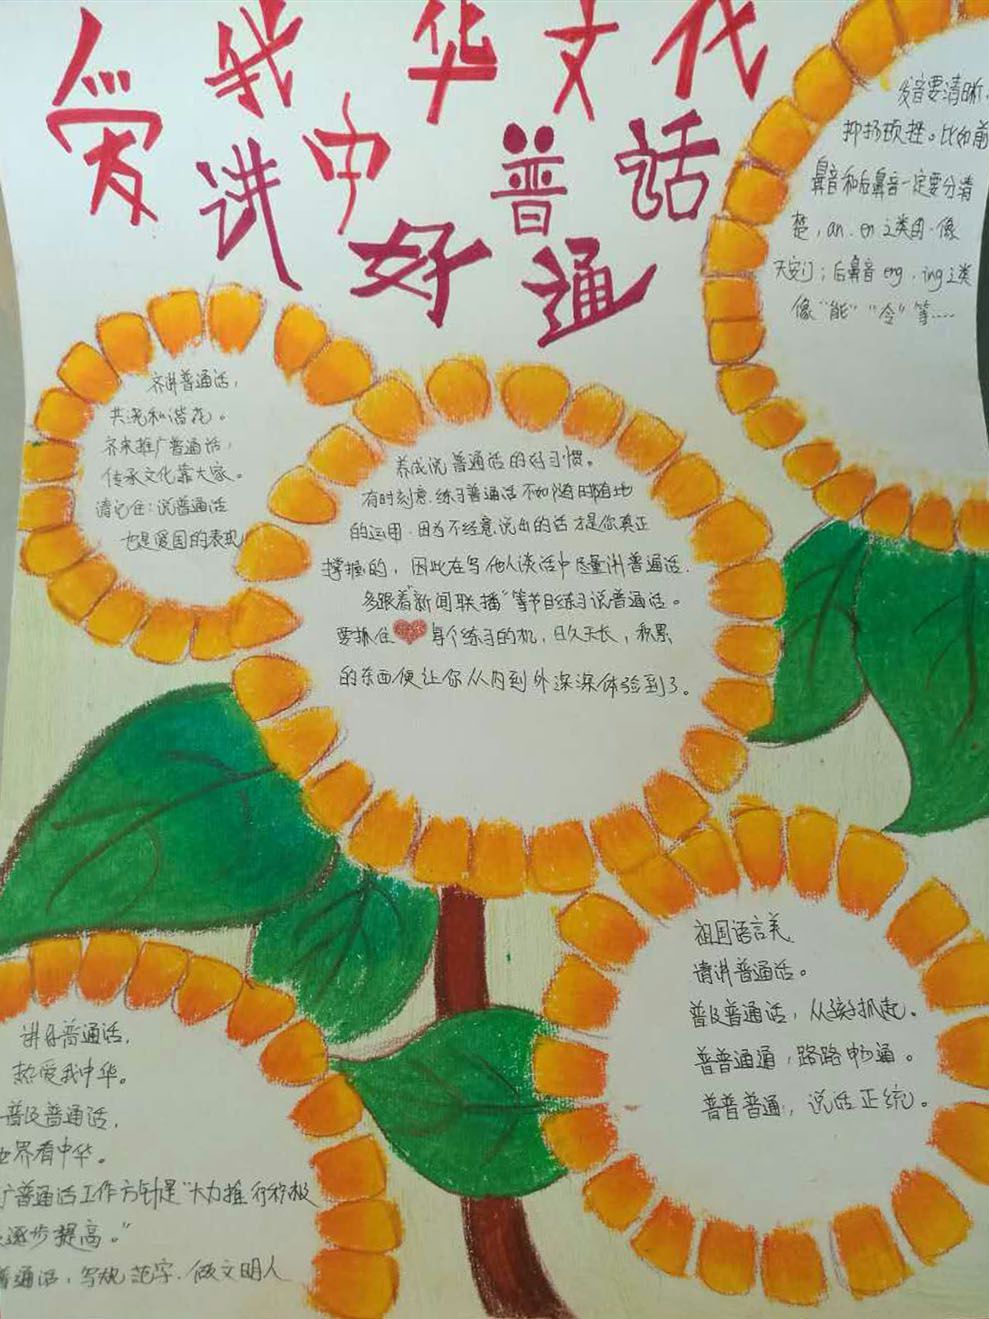 爱我中华文化
讲好普通话
发音要清晰、
抑扬顿挫。比如前
鼻音和后鼻音一定要分清
楚，an、en之类的.像
天安门；后鼻音eng，ing之类
像“能”“令”等……
齐讲普通话，
共浇和谐花。
齐来推广普通话，
传承文化靠大家。
请记住：说普通话
也是爱国的表现
养成说普通话的好习惯。
有时刻意练习普通话不如随时随地
的运用.因为不经意说出的话才是你真正
掌握的，因此在与他人谈话中尽量讲普通话.
多跟着“新闻联播”等节目练习说普通话。
要抓住每个练习的机，日久天长，积累
的东西便让你从内到外深深体验到了。
祖国语言美
请讲普通话。
普及普通话，从孩子抓起。
普普通通，路路畅通。
普普普通，说话正统。
讲好普通话，
热爱我中华。
普及普通话，
世界看中华。
广普通话工作方针是“大力推行积极
逐步提高。”
普通话，写规范字.做文明人